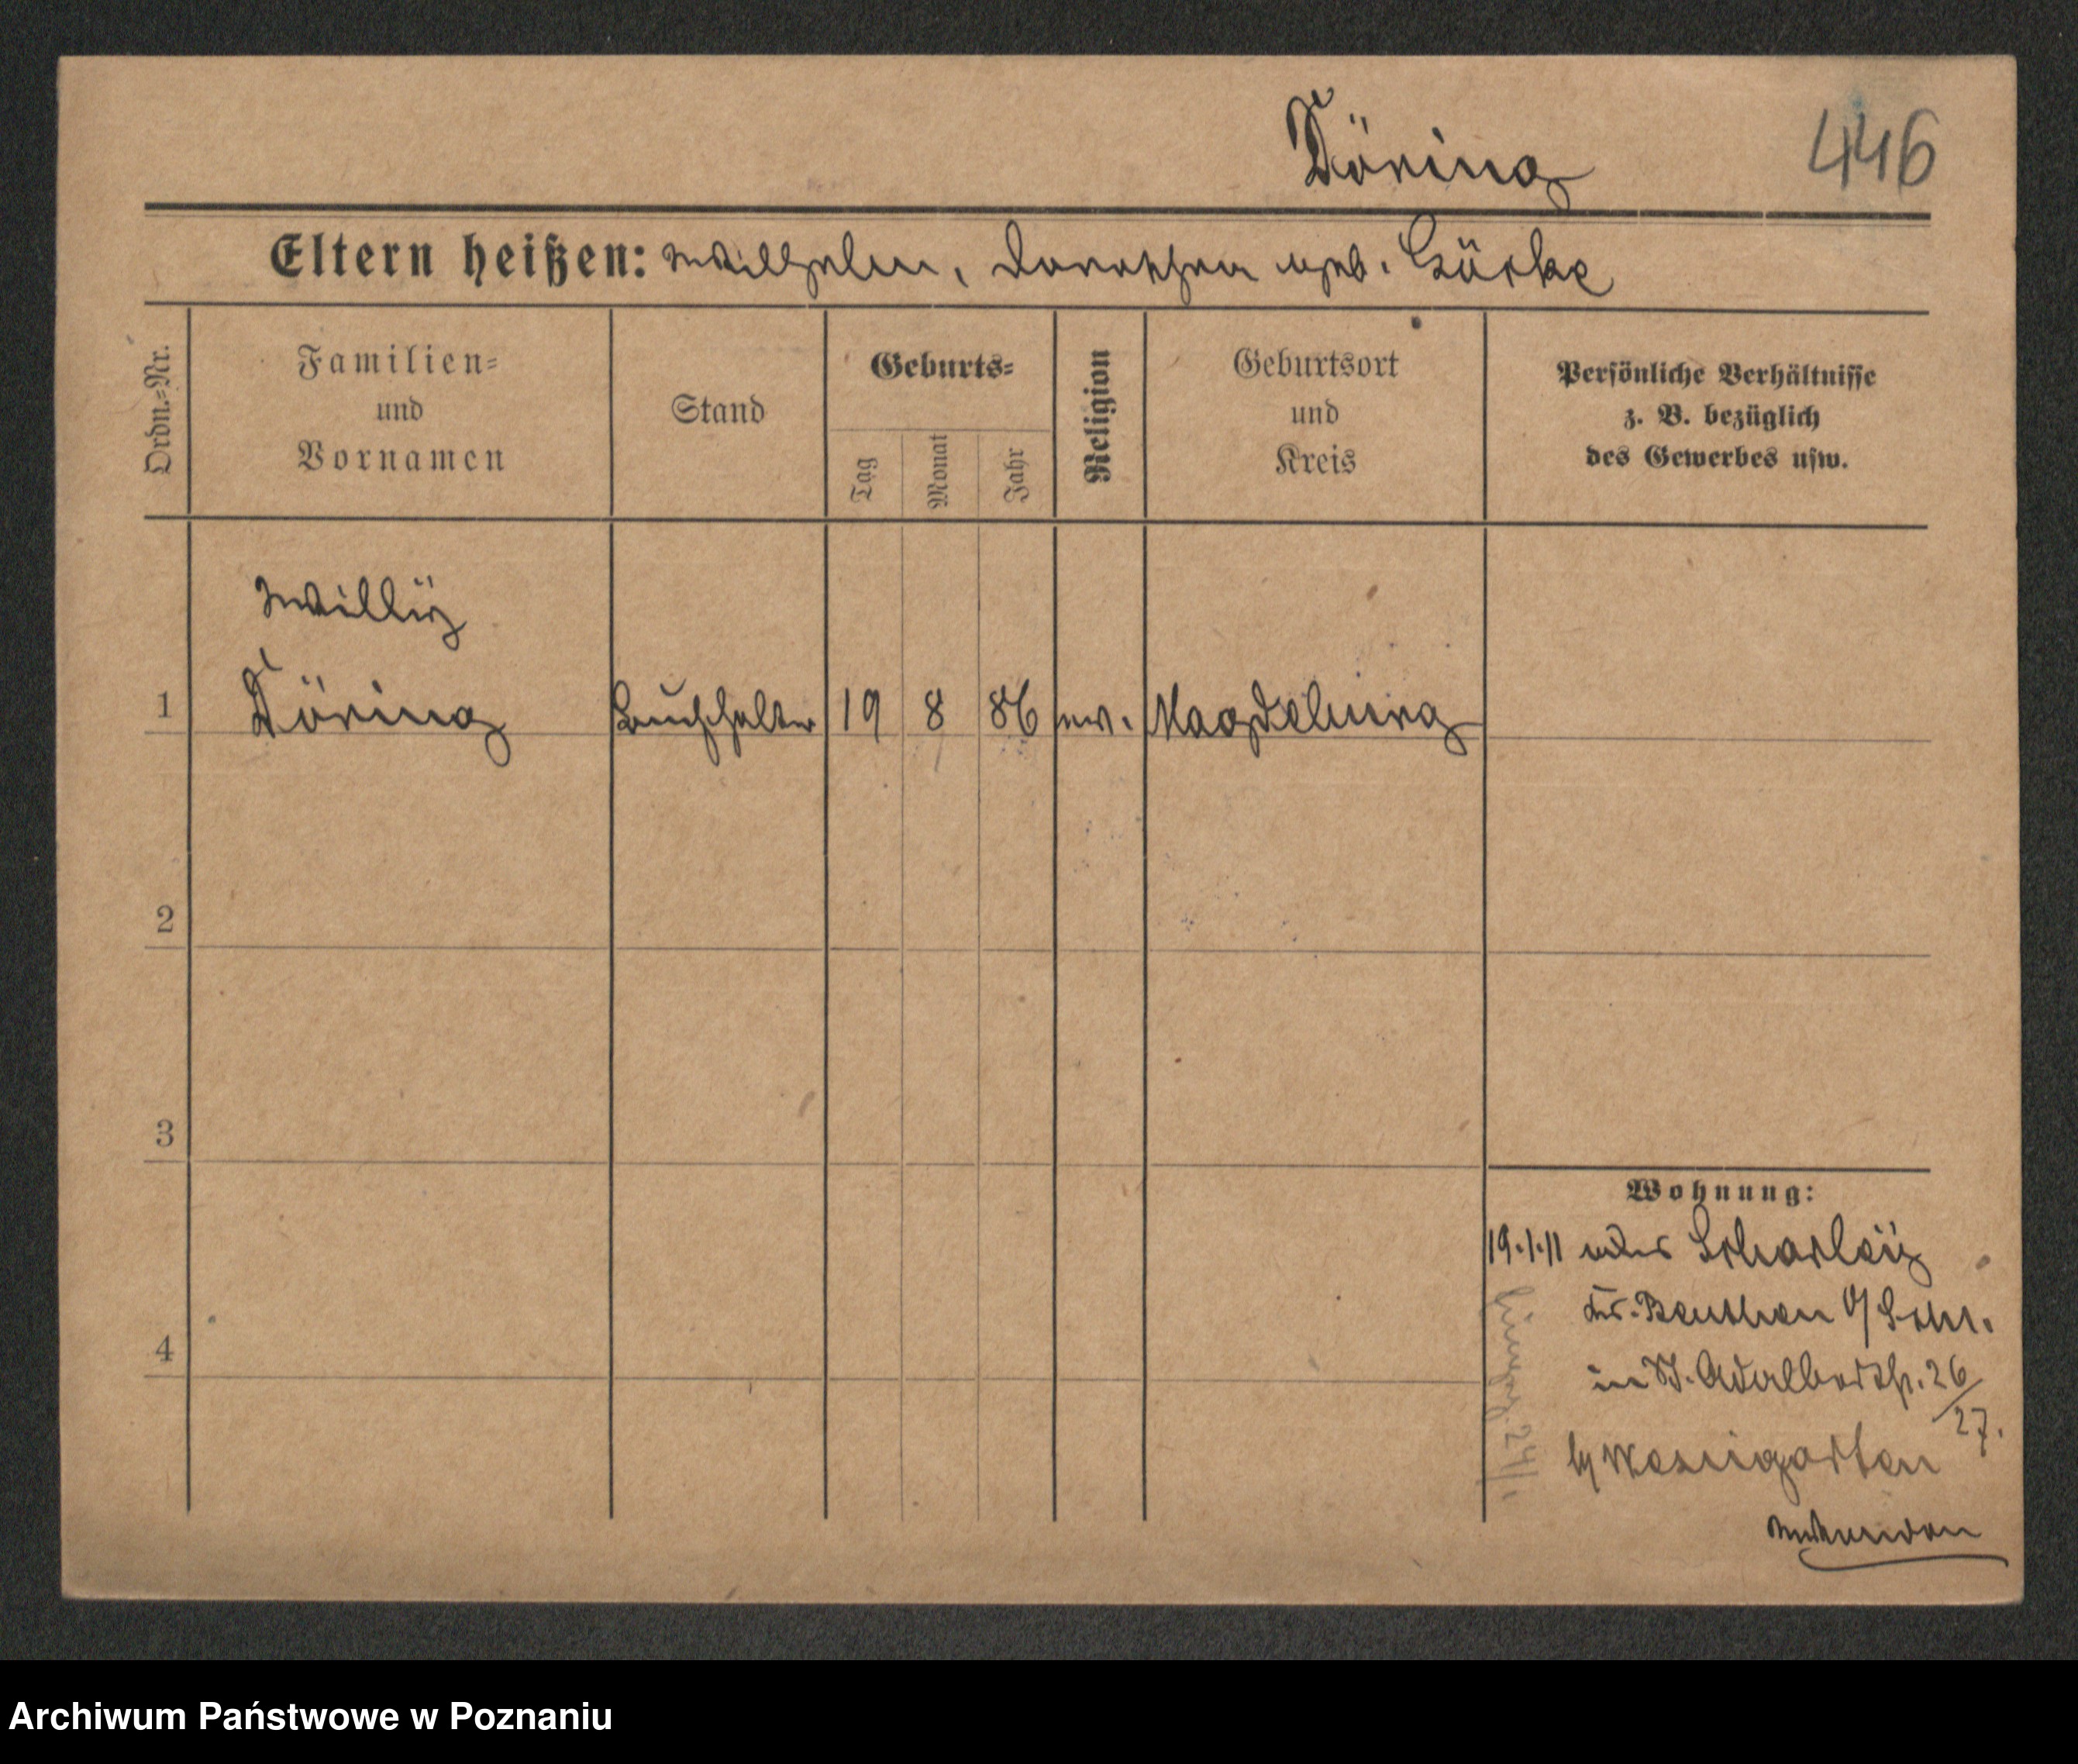 Döring 446
Eltern heißen: Wilhelm, Dorothea geb. Gürke
Ordn.=Nr.
Familien=
und
Vornamen
Stand
Geburts=
Tag
Monat
Jahr
Religion
Geburtsort
und
Kreis
Persönliche Verhältnisse
z. B. bezüglich
des Gewerbes usw.
Willÿ
1 Döring Buchhalter 19 8 86 ev. Magdeburg
2
3
4
Wohnung:
19.1.11 aus Scharleÿ
Kr. Beuthen O/Schl.
in St. Adalbertstr. 26/27.
b/
24/1.